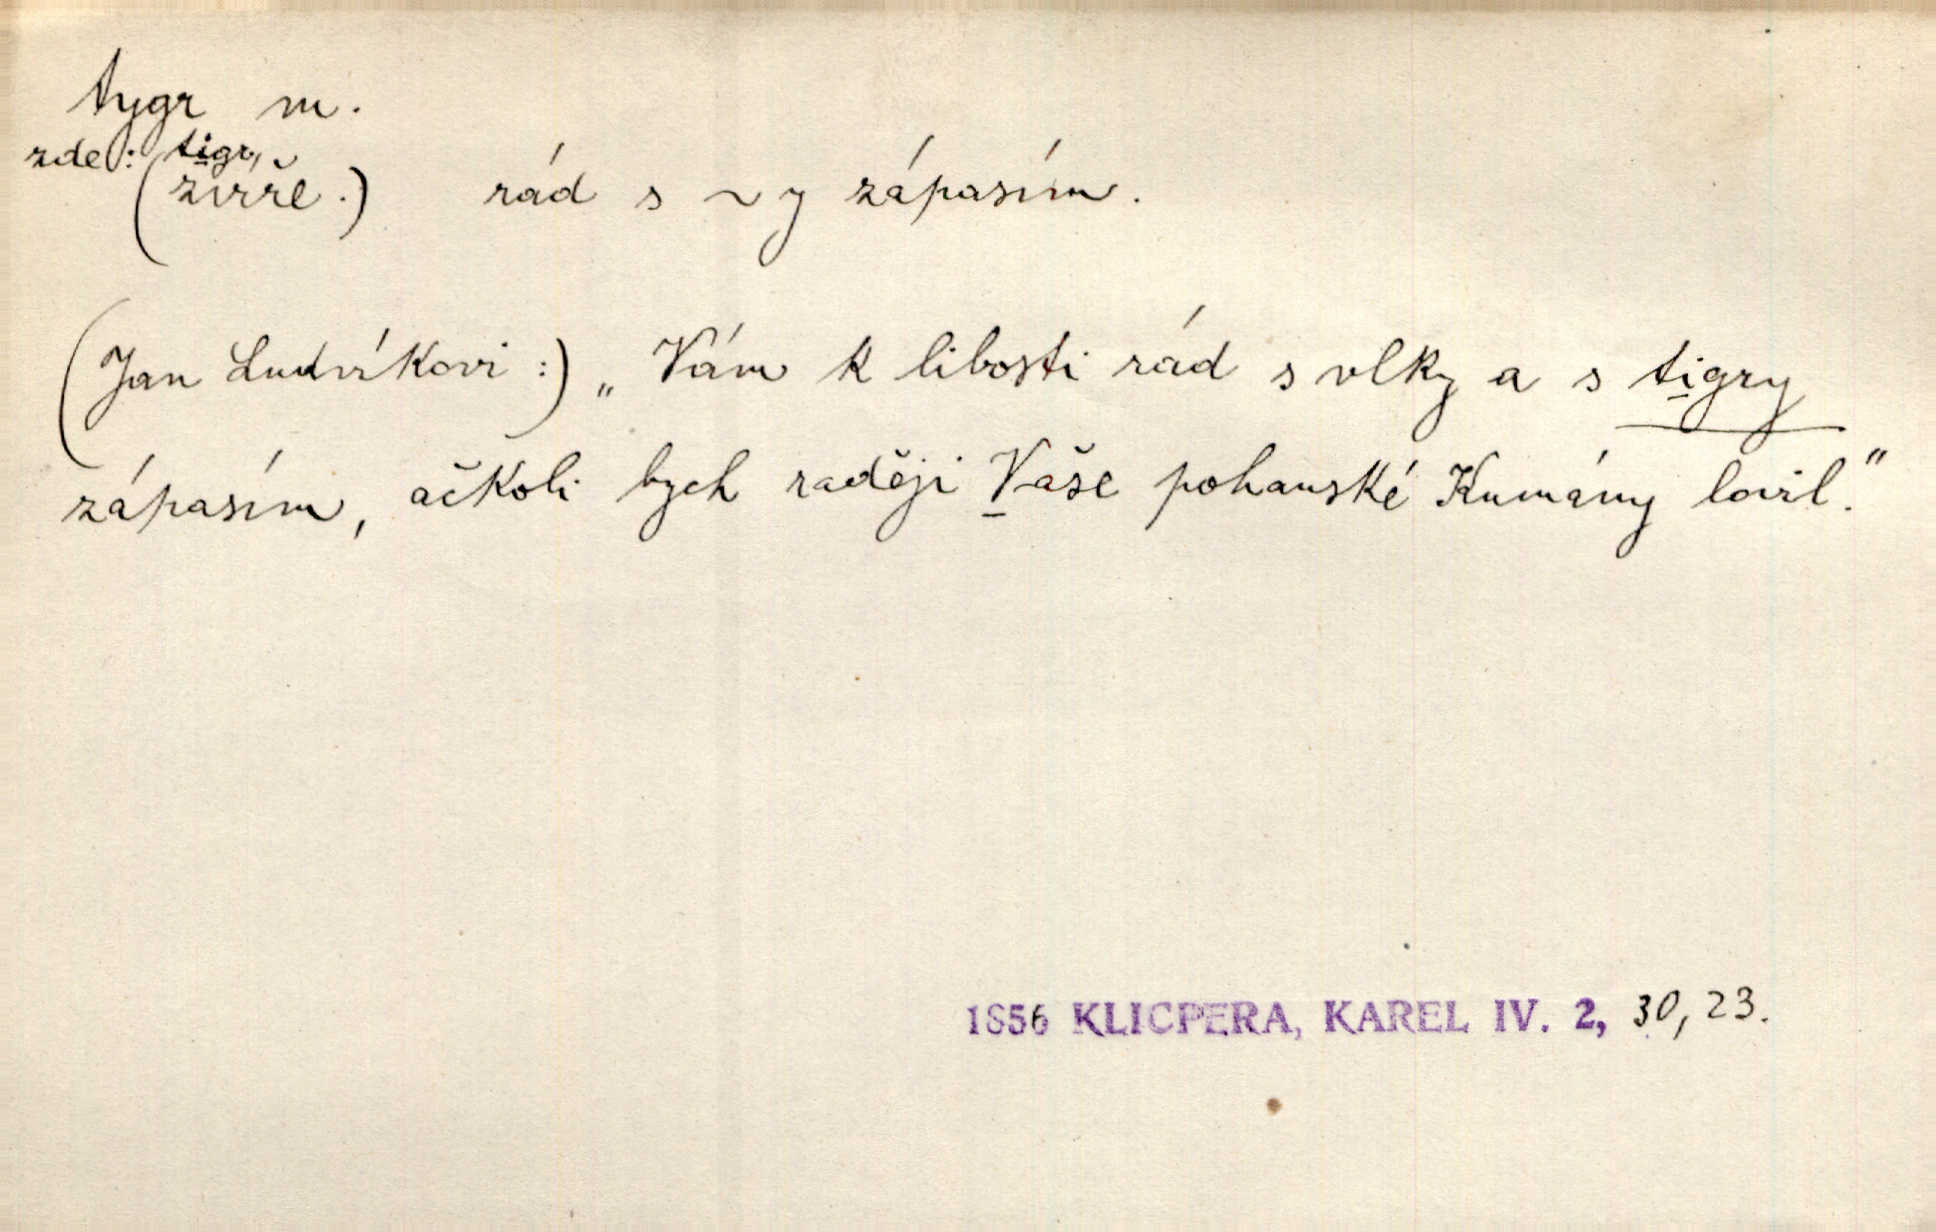 tygr m.
zde: tigr,
(zvíře.) rád s ~y zápasím.
(Jan Ludvíkovi:) „Vám k libosti rád s vlky a s tigry
zápasím, ačkoli bych raději Vaše pohanské Kumány lovil."
1856 KLICPERA, KAREL IV. 2, 30, 23.